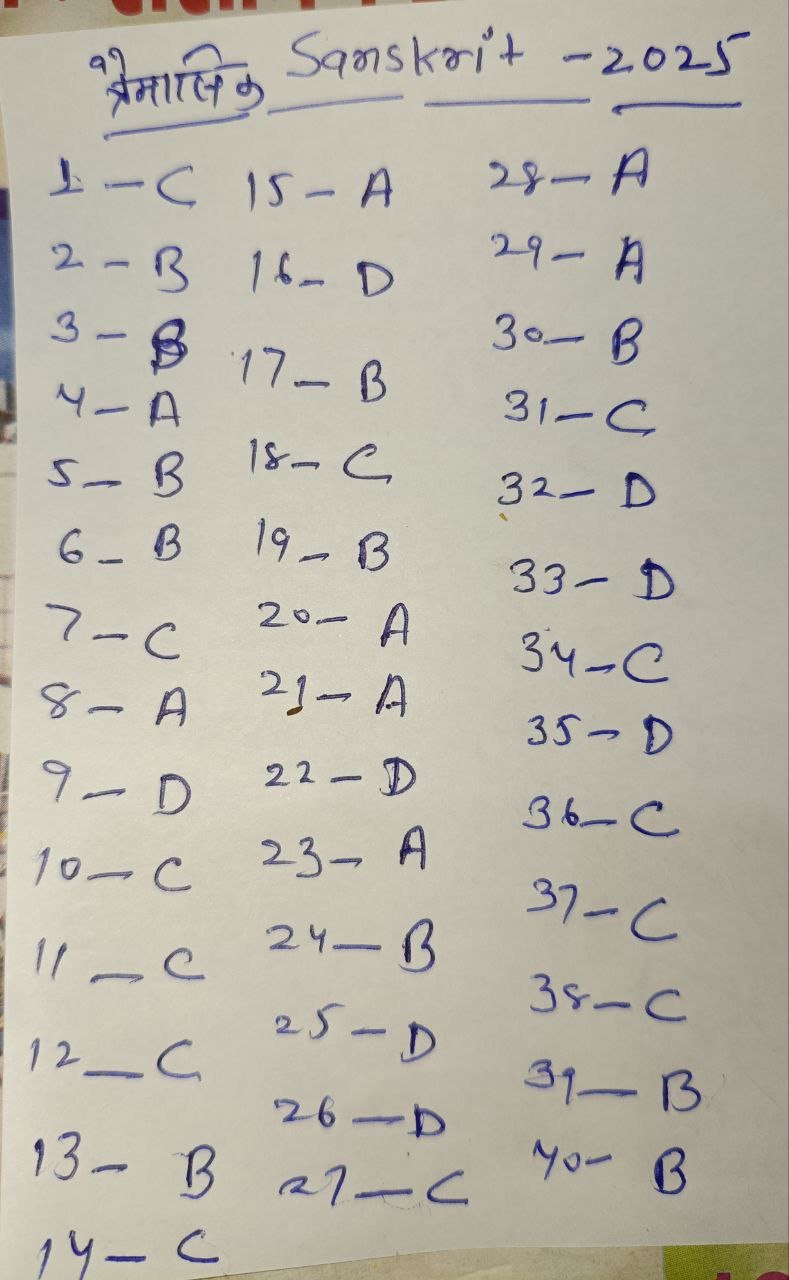 त्रैमासिक Sanskrit - 2025
1 - C
2 - B
3 - B
4 - A
5 - B
6 - B
7 - C
8 - A
9 - D
10 - C
11 - C
12 - C
13 - B
14 - C
15 - A
16 - D
17 - B
18 - C
19 - B
20 - A
21 - A
22 - D
23 - A
24 - B
25 - D
26 - D
27 - C
28 - A
29 - A
30 - B
31 - C
32 - D
33 - D
34 - C
35 - D
36 - C
37 - C
38 - C
39 - B
40 - B